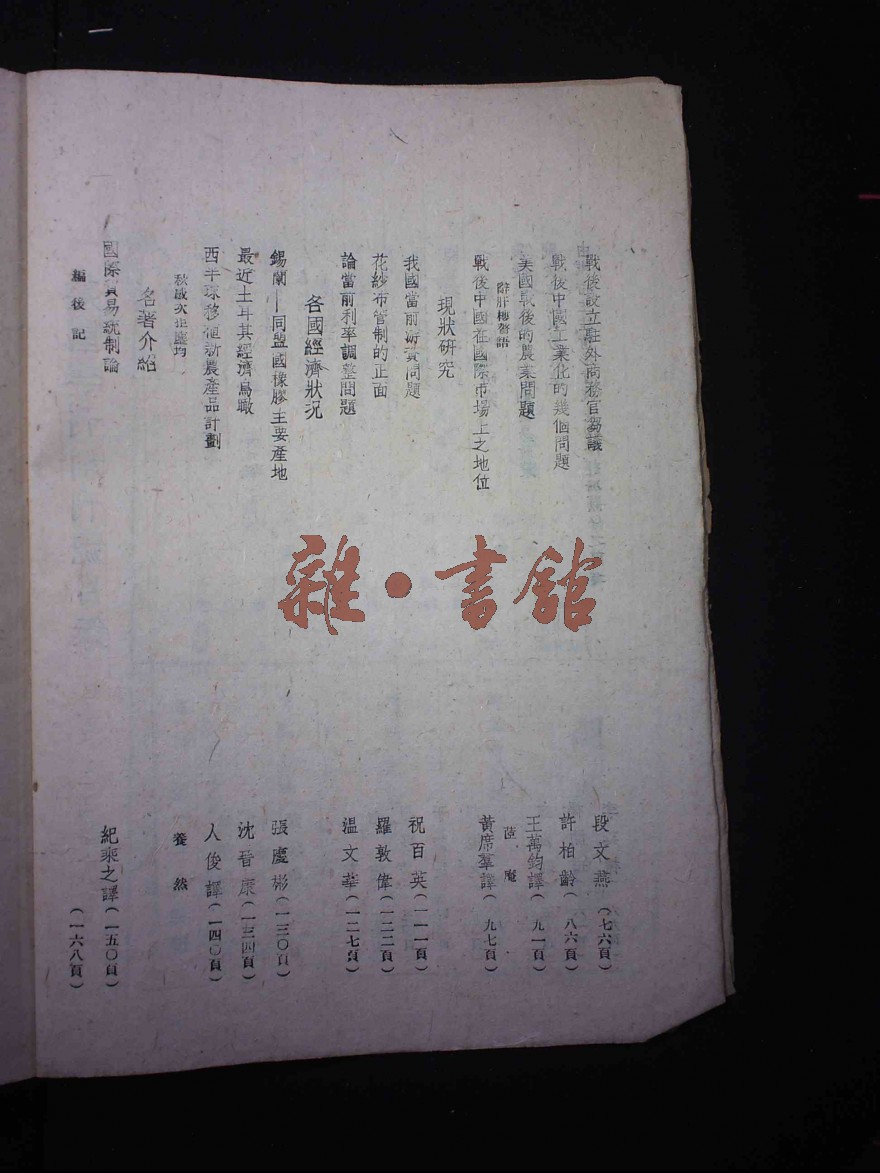 戰後設立駐外商務官芻議　段文燕（七六頁）
戰後中國工業化的幾個問題　許柏齡（八六頁）
美國戰後的農業問題　王萬鈞譯（九一頁）
戰後中國在國際市場上之地位　黃席羣譯（九七頁）
現狀研究
我國當前游資問題　祝百英（一一一頁）
花紗布管制的正面　羅敦偉（一二二頁）
論當前利率調整問題　温文華（一二七頁）
各國經濟狀況
錫蘭—同盟國橡膠主要產地　張慶彬（一三〇頁）
最近土耳其經濟鳥瞰　沈晋康（一三四頁）
西半球移植新農產品計劃　人俊譯（一四〇頁）
養然
名著介紹
國際貿易統制論　紀乘之譯（一五〇頁）
編後記　（一六八頁）
雜•書館